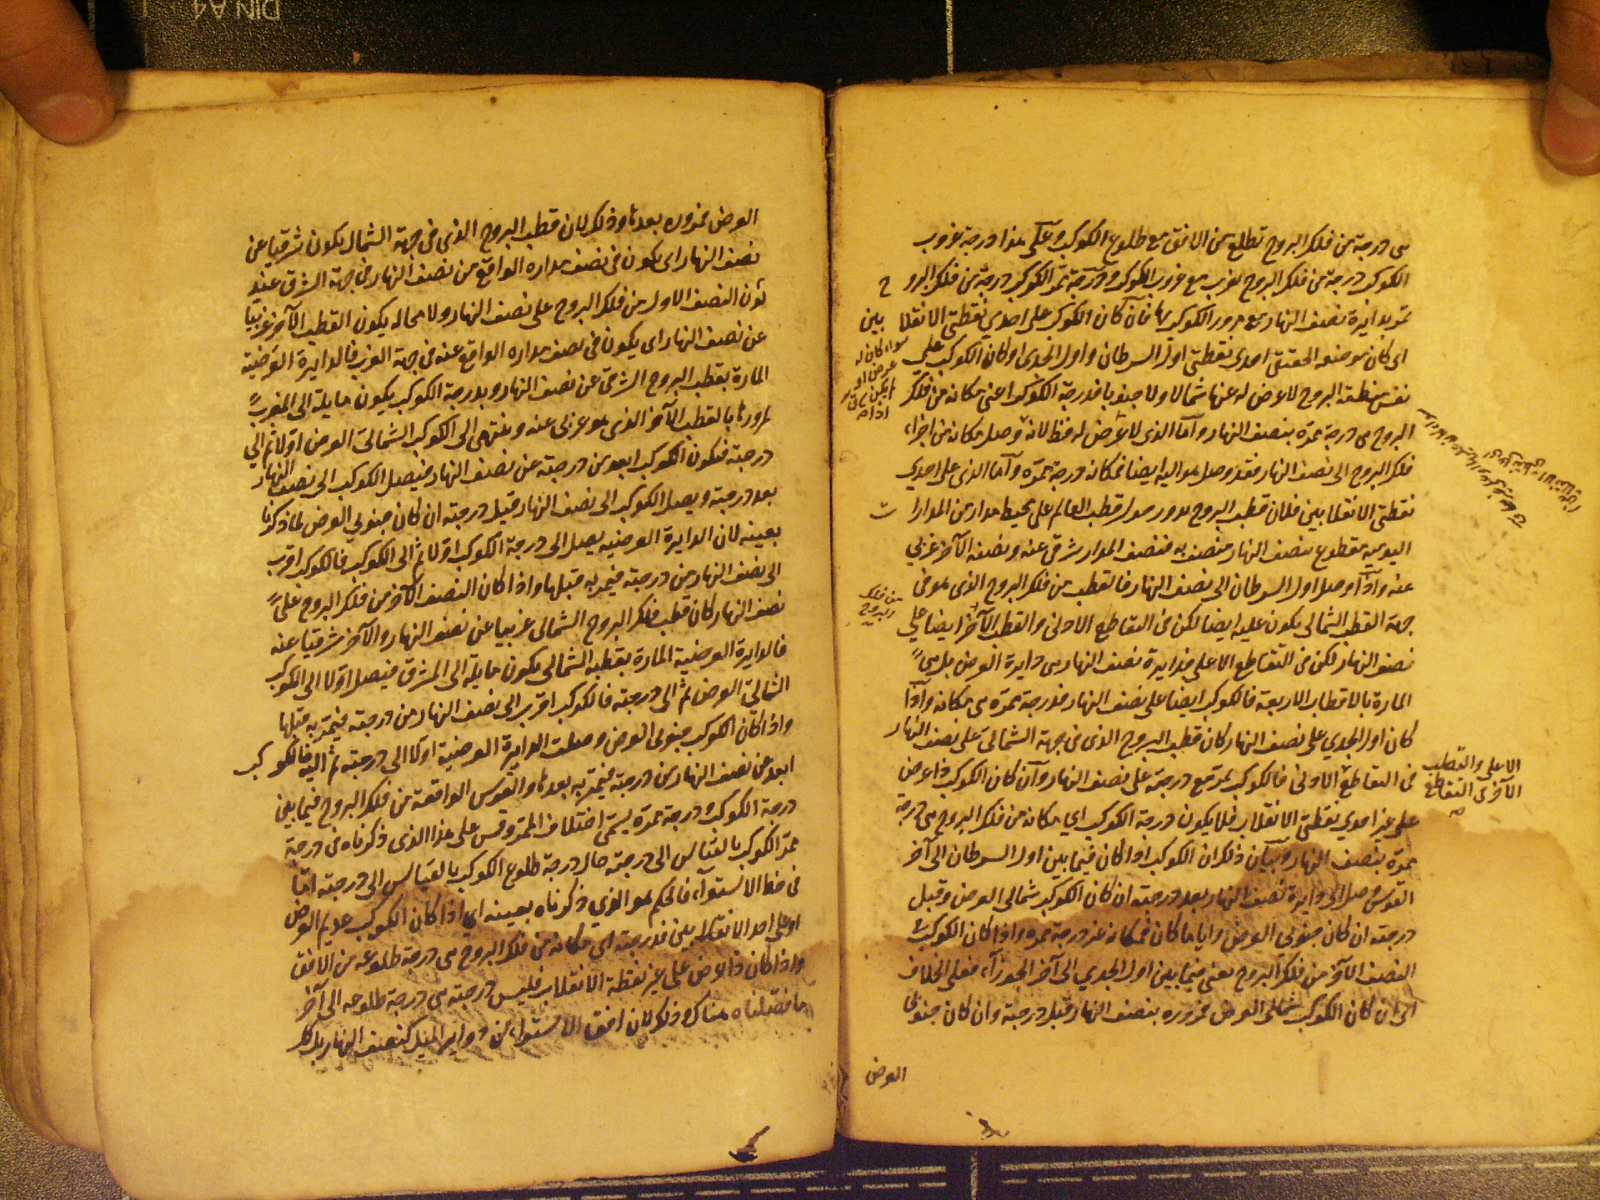 هي درجة من فلك البروج تطلع من الافق مع طلوع الكوكب وعلى هذا درجة غروب
الكوكب درجة من فلك البروج تغرب مع غروب الكوكب ودرجة ممر الكوكب درجة من فلك البروج
تمر بدايرة نصف النهار مع مرور الكوكب بها فان كان الكوكب على احدى نقطتي الانقلابين
اى كان موضعه الحقيقى احدى نقطتى اول السرطان واول الجدى او كان الكوكب على
نفس منطقة البروج لا عرض له عنها شمالا ولا جنوبا فدرجة الكوكب اعنى مكانه من فلك
البروج هى درجة ممره بنصف النهار واما الذى لا عرض له فظ لانه وصل مكانه من اجزاء
فلك البروج الى نصف النهار فقد وصل هو اليه ايضا فمكانه درجة ممره واما الذى على احدى
نقطتى الانقلابين فلان قطب البروج يدور حول قطب العالم على محيط مدار من المدارات
اليومية مقطوع بنصف النهار منصف به فنصف المدار شرقى عنه ونصفه الآخر غربى
عنه واذا وصل اول السرطان الى نصف النهار فالقطب من فلك البروج الذى هو فى
جهة القطب الشمالى يكون عليه ايضا لكن فى التقاطع الادنى والقطب الآخر ايضا على
نصف النهار لكن فى التقاطع الاعلى فدايرة نصف النهار هى دايرة العرض بل هى
المارة بالاقطاب الاربعة فالكوكب ايضا على نصف النهار فدرجة ممره هى مكانه واذا
كان اول الجدي على نصف النهار كان قطب البروج الذى فى جهة الشمالى على نصف النهار
فى التقاطع الاولى فالكوكب يمر مع درجته على نصف النهار وان كان الكوكب ذا عرض
على غير احدى نقطتى الانقلاب فلا يكون درجة الكوكب اي مكانه من فلك البروج هى درجة
ممره بنصف النهار وبيان ذلك ان الكوكب اذا كان فيما بين اول السرطان الى آخر
القوس وصل الى دايرة نصف النهار بعد درجته ان كان الكوكب شمالى العرض وقبل
درجته ان كان جنوبى العرض وايا ما كان فمكانه غير درجة ممره واذا كان الكوكب فى
النصف الآخر من فلك البروج يعنى فيما بين اول الجدي الى آخر الجوزآء فعلى الخلاف
اى ان كان الكوكب شمالى العرض فمروره بنصف النهار قبل درجته وان كان جنوبى
العرض
سواء كان له
عرض او
لم يكن
من فلك
البروج
الاعلى والقطب
الآخر فى التقاطع
العرض فمروره بعدها وذلك لان قطب البروج الذى فى جهة الشمال يكون شرقيا عن
نصف النهار اى يكون فى نصف مداره الواقع من نصف النهار فى جهة الشرق عند
كون النصف الاول من فلك البروج على نصف النهار ولا محالة يكون القطب الآخر غربيا
عن نصف النهار اى يكون فى نصف مداره الواقع عنه فى جهة الغرب فالدايرة العرضية
المارة بقطب البروج الشرقى عن نصف النهار وبدرجة الكوكب يكون مايلة الى المغرب
لمرورها بالقطب الآخر الذى هو غربى عنه وينتهى الى الكوكب الشمالى العرض اولا ثم الى
درجته فيكون الكوكب ابعد من درجته عن نصف النهار فيصل الكوكب الى نصف النهار
بعد درجته ويصل الكوكب الى نصف النهار قبل درجته ان كان جنوبى العرض لما ذكرنا
بعينه لان الدايرة العرضية يصل الى درجة الكوكب اولا ثم الى الكوكب فالكوكب اقرب
الى نصف النهار من درجته فيمر به قبلها واذا كان النصف الآخر من فلك البروج على
نصف النهار كان قطب فلك البروج الشمالى غربيا عن نصف النهار والآخر شرقيا عنه
فالدايرة العرضية المارة بقطبه الشمالى يكون مايلة الى المشرق فيصل اولا الى الكوكب
الشمالى العرض ثم الى درجته فالكوكب اقرب الى نصف النهار من درجته فيمر به قبلها
واذا كان الكوكب جنوبى العرض وصلت الدايرة العرضية اولا الى درجته ثم اليه فالكوكب
ابعد عن نصف النهار من درجته فيمر به بعدها والقوس الواقعة من فلك البروج فيما بين
درجة الكوكب ودرجة ممره يسمى اختلاف الممر وقس على هذا الذى ذكرناه فى درجة
ممر الكوكب بالقياس الى درجته حال درجة طلوع الكوكب بالقياس الى درجته اما
فى خط الاستوآء فالحكم هو الذي ذكرناه بعينه اي اذا كان الكوكب عديم العرض
او على احد الانقلابين فدرجته اي مكانه من فلك البروج هى درجة طلوعه من الافق
واذا كان ذا عرض على غير نقطة الانقلاب فليس درجته هى درجة طلوعه الى آخر
ما فصلناه هناك وذلك لان افق الاستواء من دواير الميل كنصف النهار بل كل